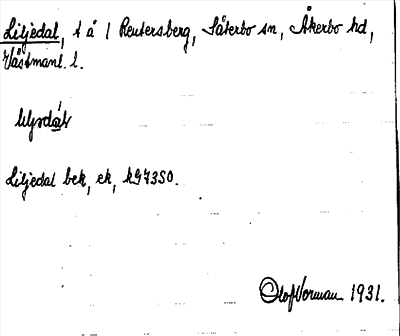 Liljedal, t å 1 Reutersberg, Säterbo sn, Åkerbo hd,
Västmanl. l.
Liljedal bek, ek, kG73SO.
Olof Norman 1931.